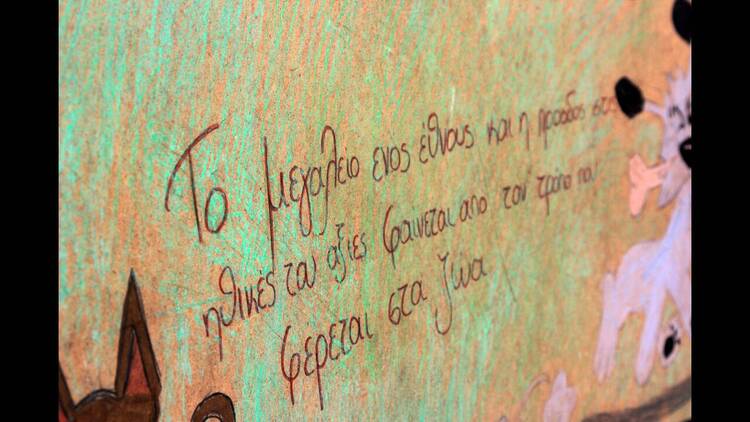 Το μεγαλείο ενός έθνους και η πρόοδος στις
ηθικές του αξίες φαίνεται απο τον τρόπο που
φέρεται στα ζώα